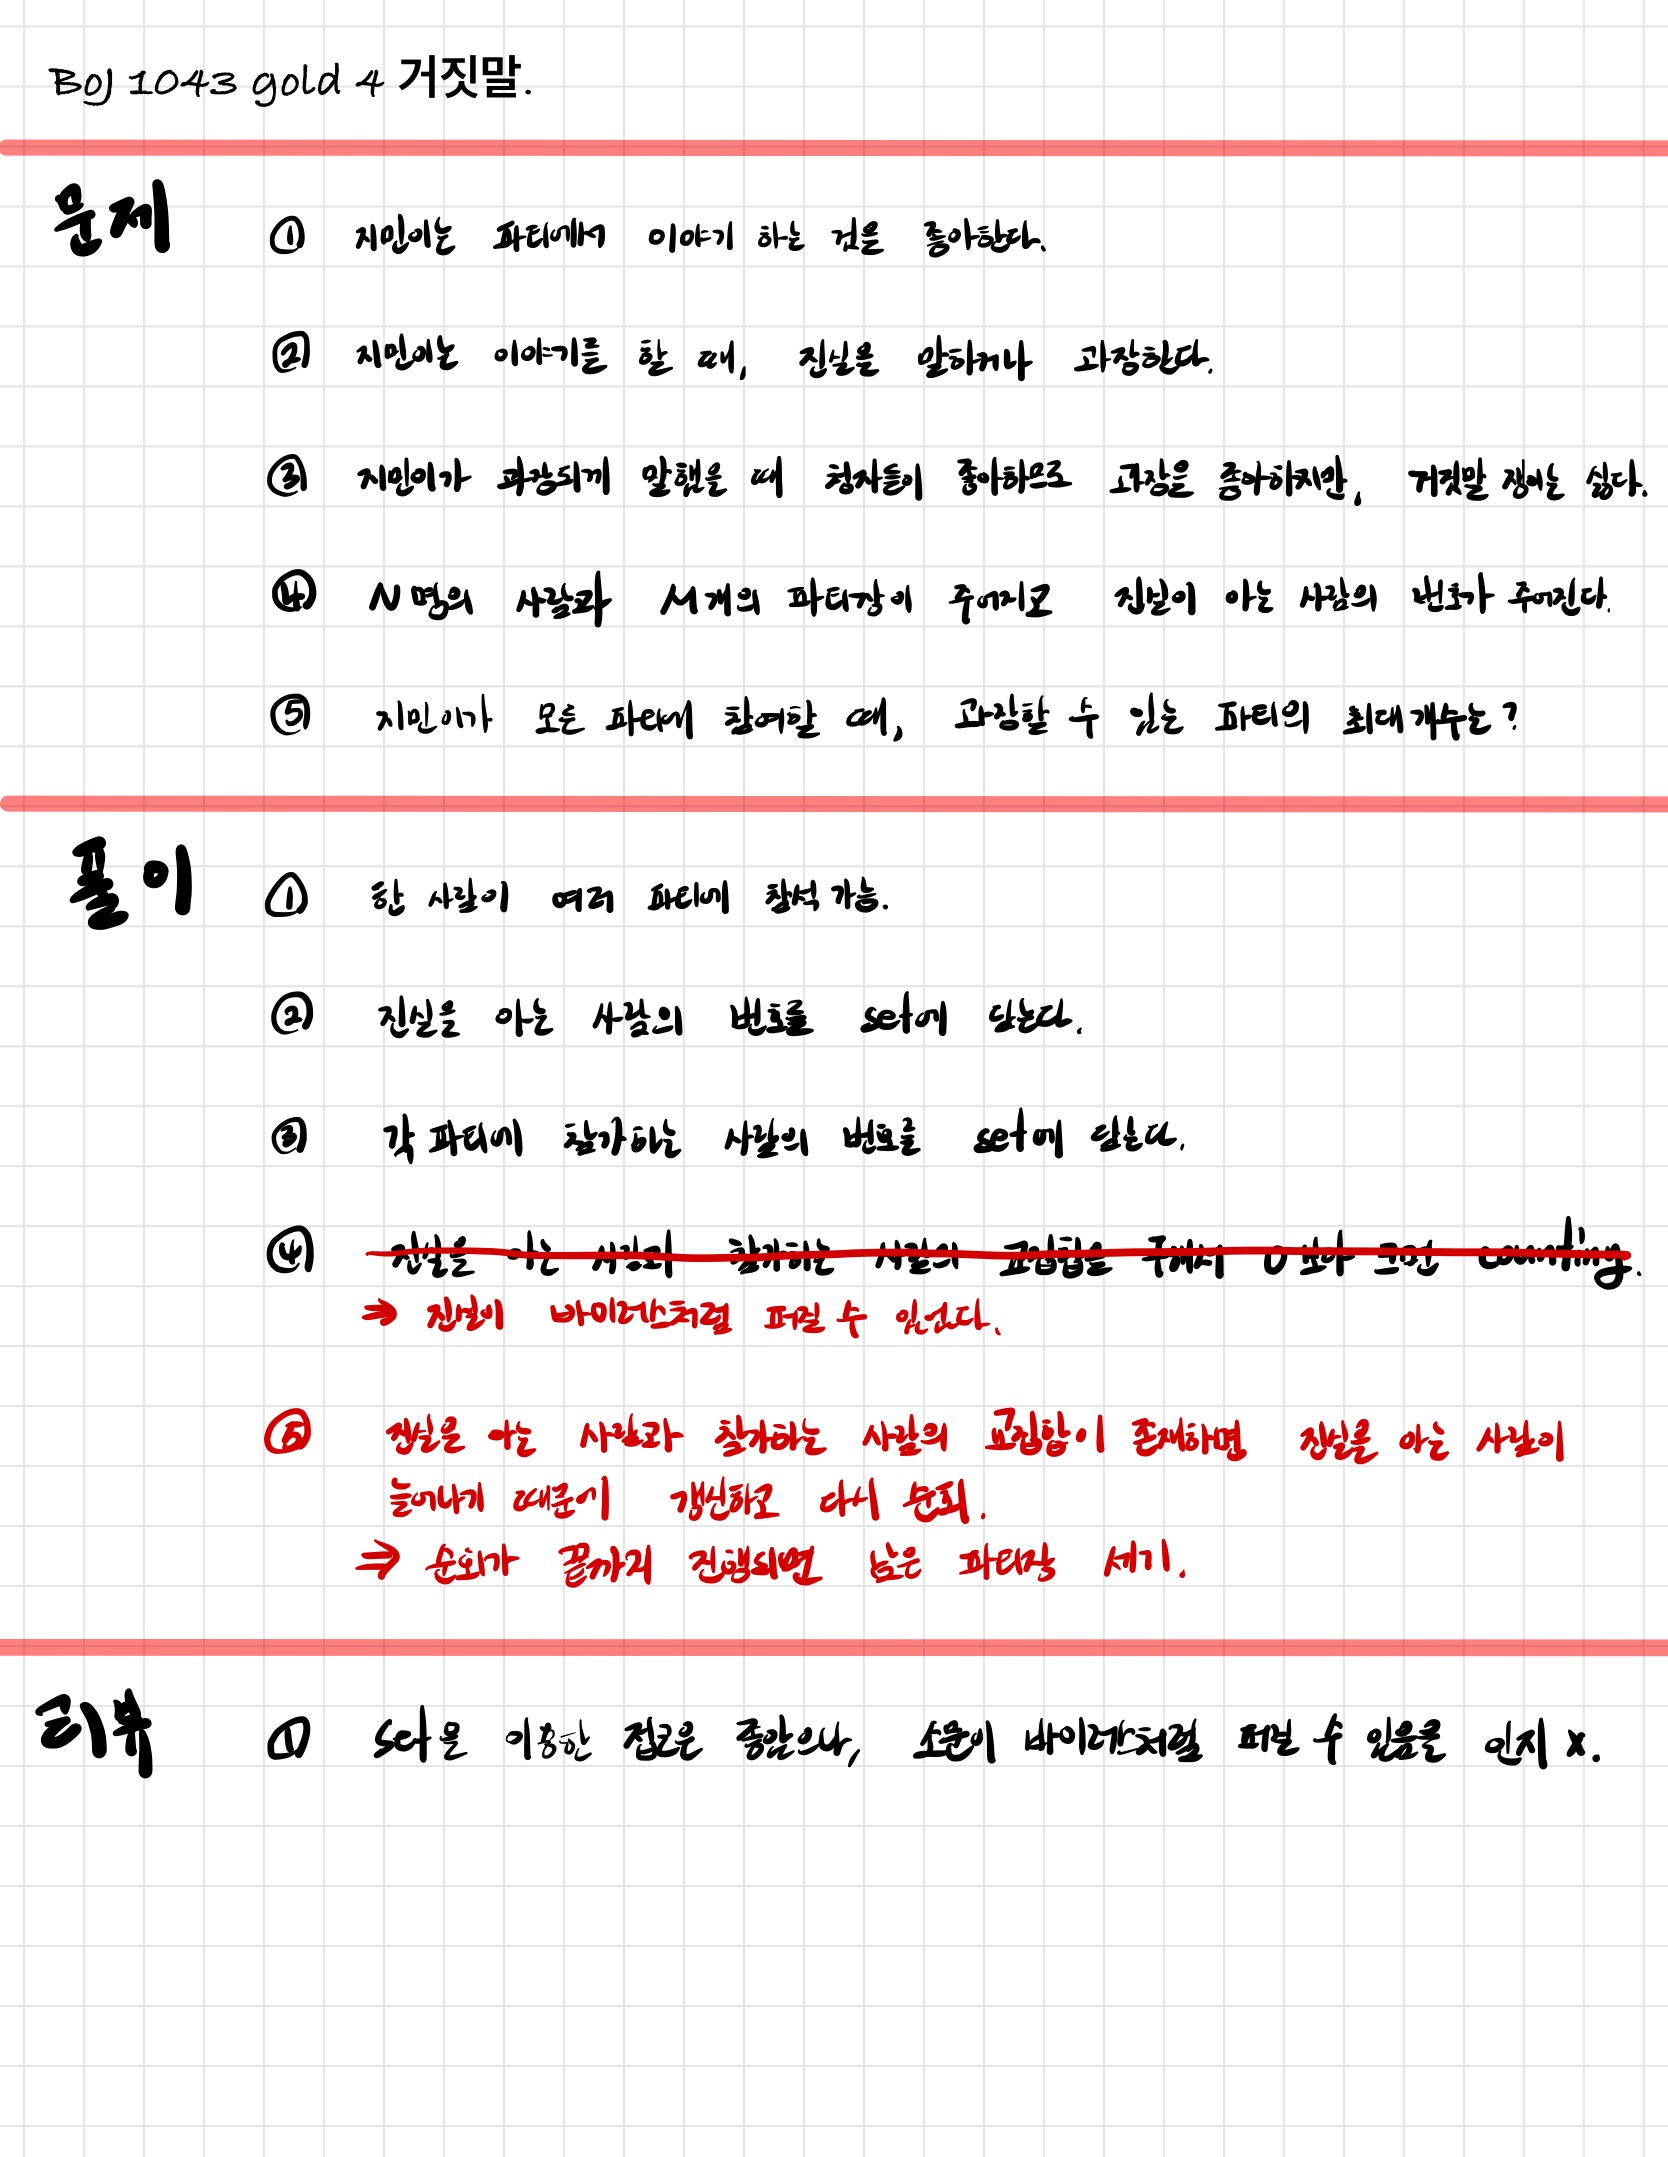 BOJ 1043 gold 4 거짓말.
문제
① 지민이는 파티에서 이야기 하는 것을 좋아한다.
② 지민이는 이야기를 할 때, 진실을 말하거나 과장한다.
③ 지민이가 과장되게 말했을 때 청자들이 좋아하므로 과장을 좋아하지만, 거짓말 쟁이는 싫다.
④ N명의 사람과 M개의 파티장이 주어지고 진실이 아는 사람의 번호가 주어진다.
⑤ 지민이가 모든 파티에 참여할 때, 과장할 수 있는 파티의 최대개수는?
풀이
① 한 사람이 여러 파티에 참석 가능.
② 진실을 아는 사람의 번호를 set에 담는다.
③ 각 파티에 참가하는 사람의 번호를 set에 담는다.
④ 진실을 아는 사람과 참가하는 사람의 교집합을 구해서 0보다 크면 counting.
⇒ 진실이 바이러스처럼 퍼질 수 있었다.
⑤ 진실을 아는 사람과 참가하는 사람의 교집합이 존재하면 진실을 아는 사람이
늘어나기 때문에 갱신하고 다시 순회.
⇒ 순회가 끝까지 진행되면 남은 파티장 세기.
리뷰
① set을 이용한 접근은 좋았으나, 소문이 바이러스처럼 퍼질 수 있음을 인지 x.